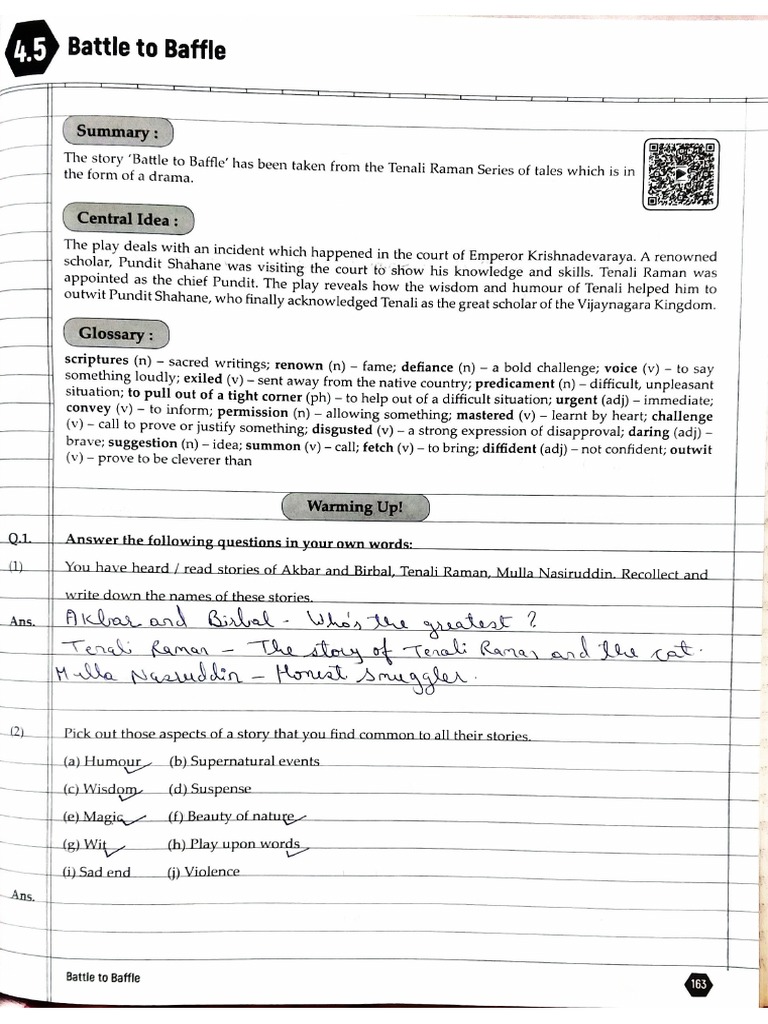 4.5 Battle to Baffle
Summary :
The story 'Battle to Baffle' has been taken from the Tenali Raman Series of tales which is in
the form of a drama.
Central Idea :
The play deals with an incident which happened in the court of Emperor Krishnadevaraya. A renowned
scholar, Pundit Shahane was visiting the court to show his knowledge and skills. Tenali Raman was
appointed as the chief Pundit. The play reveals how the wisdom and humour of Tenali helped him to
outwit Pundit Shahane, who finally acknowledged Tenali as the great scholar of the Vijaynagara Kingdom.
Glossary :
scriptures (n) – sacred writings; renown (n) – fame; defiance (n) – a bold challenge; voice (v) – to say
something loudly; exiled (v) – sent away from the native country; predicament (n) – difficult, unpleasant
situation; to pull out of a tight corner (ph) – to help out of a difficult situation; urgent (adj) – immediate;
convey (v) – to inform; permission (n) – allowing something; mastered (v) – learnt by heart; challenge
(v) – call to prove or justify something; disgusted (v) – a strong expression of disapproval; daring (adj) –
brave; suggestion (n) – idea; summon (v) – call; fetch (v) – to bring; diffident (adj) – not confident; outwit
(v) – prove to be cleverer than
Warming Up!
Q.1. Answer the following questions in your own words:
(1) You have heard / read stories of Akbar and Birbal, Tenali Raman, Mulla Nasiruddin. Recollect and
write down the names of these stories.
Ans. Akbar and Birbal - Who's the greatest ?
Tenali Raman – The story of Tenali Raman and the cat.
Mulla Nasruddin – Honest Smuggler.
(2) Pick out those aspects of a story that you find common to all their stories.
(a) Humour (b) Supernatural events
(c) Wisdom (d) Suspense
(e) Magic (f) Beauty of nature
(g) Wit (h) Play upon words
(i) Sad end (j) Violence
Ans.
Battle to Baffle 163